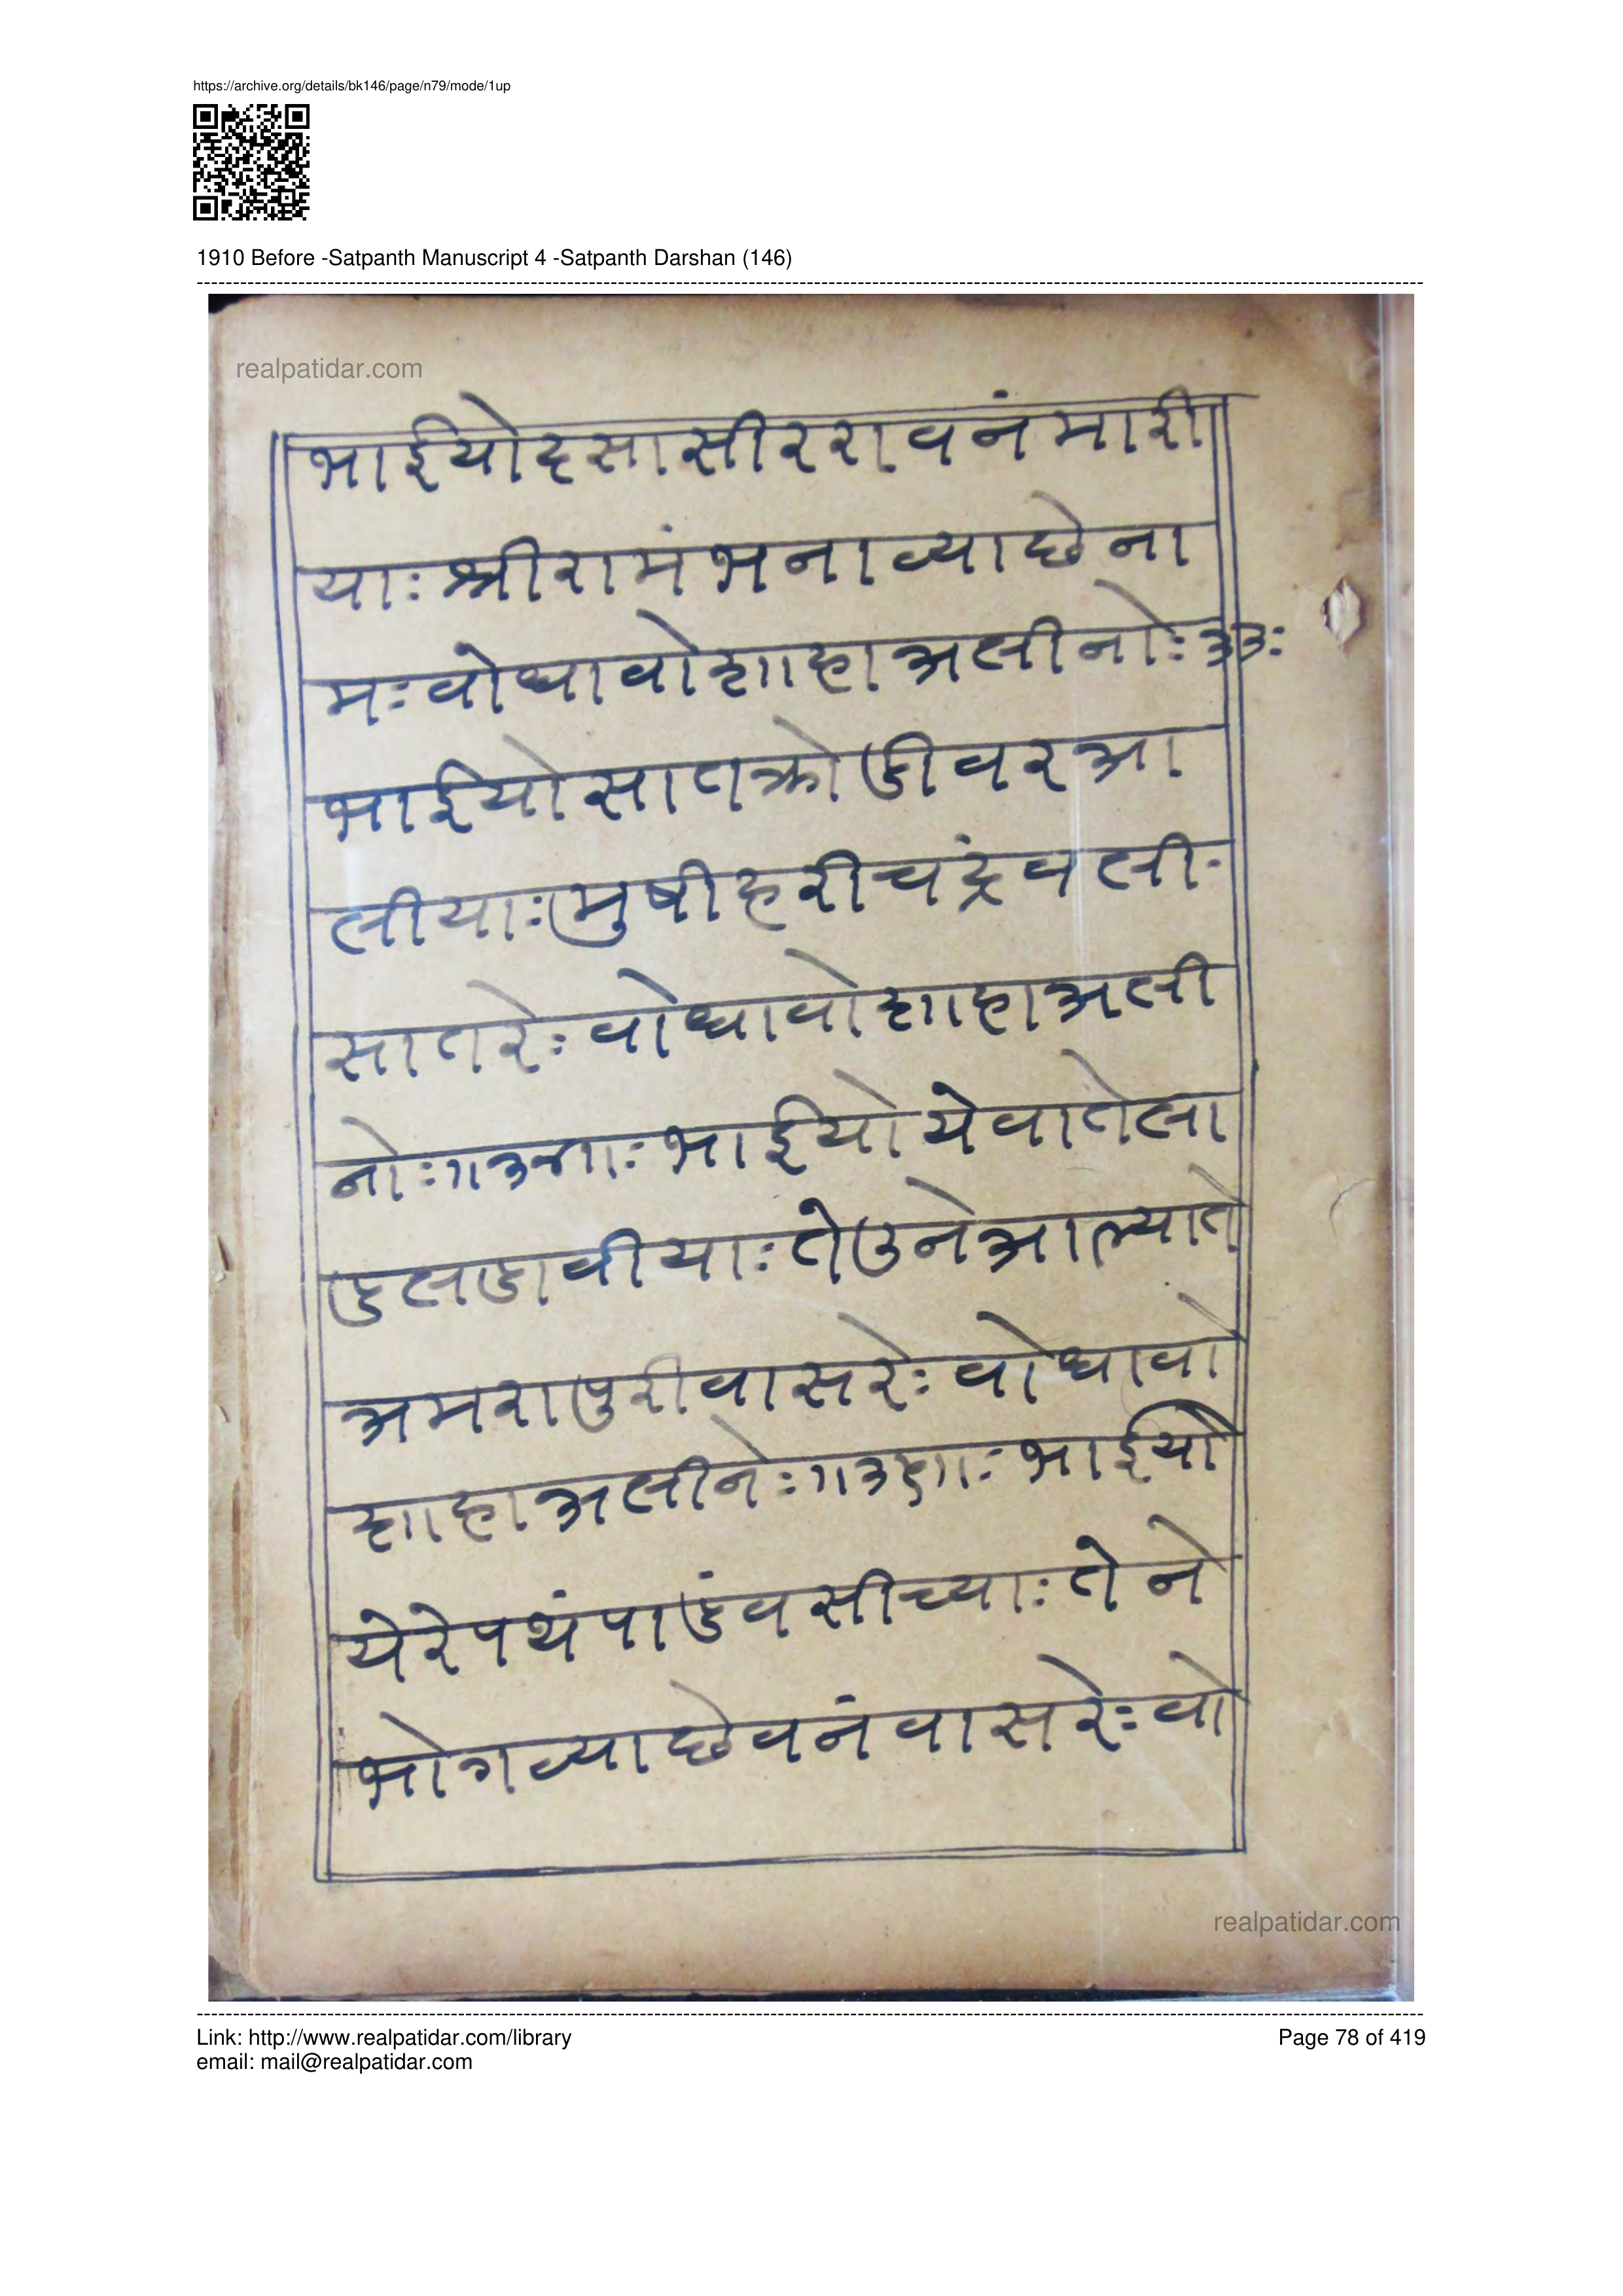 https://archive.org/details/bk146/page/n79/mode/1up
1910 Before -Satpanth Manuscript 4 -Satpanth Darshan (146)
realpatidar.com
भाईयोदसासीररावनंमारी
याःश्रीरामंभनाव्याछेना
मःवोधावोशाहाअलीनोः३३ः
भाईयोसातक्रोडीवरआ
लीयाःमुषीहरीचंद्रवली
सातरेःवोधावोशाहाअली
नोः॥३४॥ःभाईयोयेवातेला
डुलडावीयाःतेउनेआल्याते
अमरापुरीवासरेःवोधावो
शाहाअलीनेः॥३५॥ःभाईयो
येरेपथंपाडंवसीध्याःतेने
भोगव्याछेवनंवासरेःवो
realpatidar.com
Link: http://www.realpatidar.com/library
Page 78 of 419
email: mail@realpatidar.com